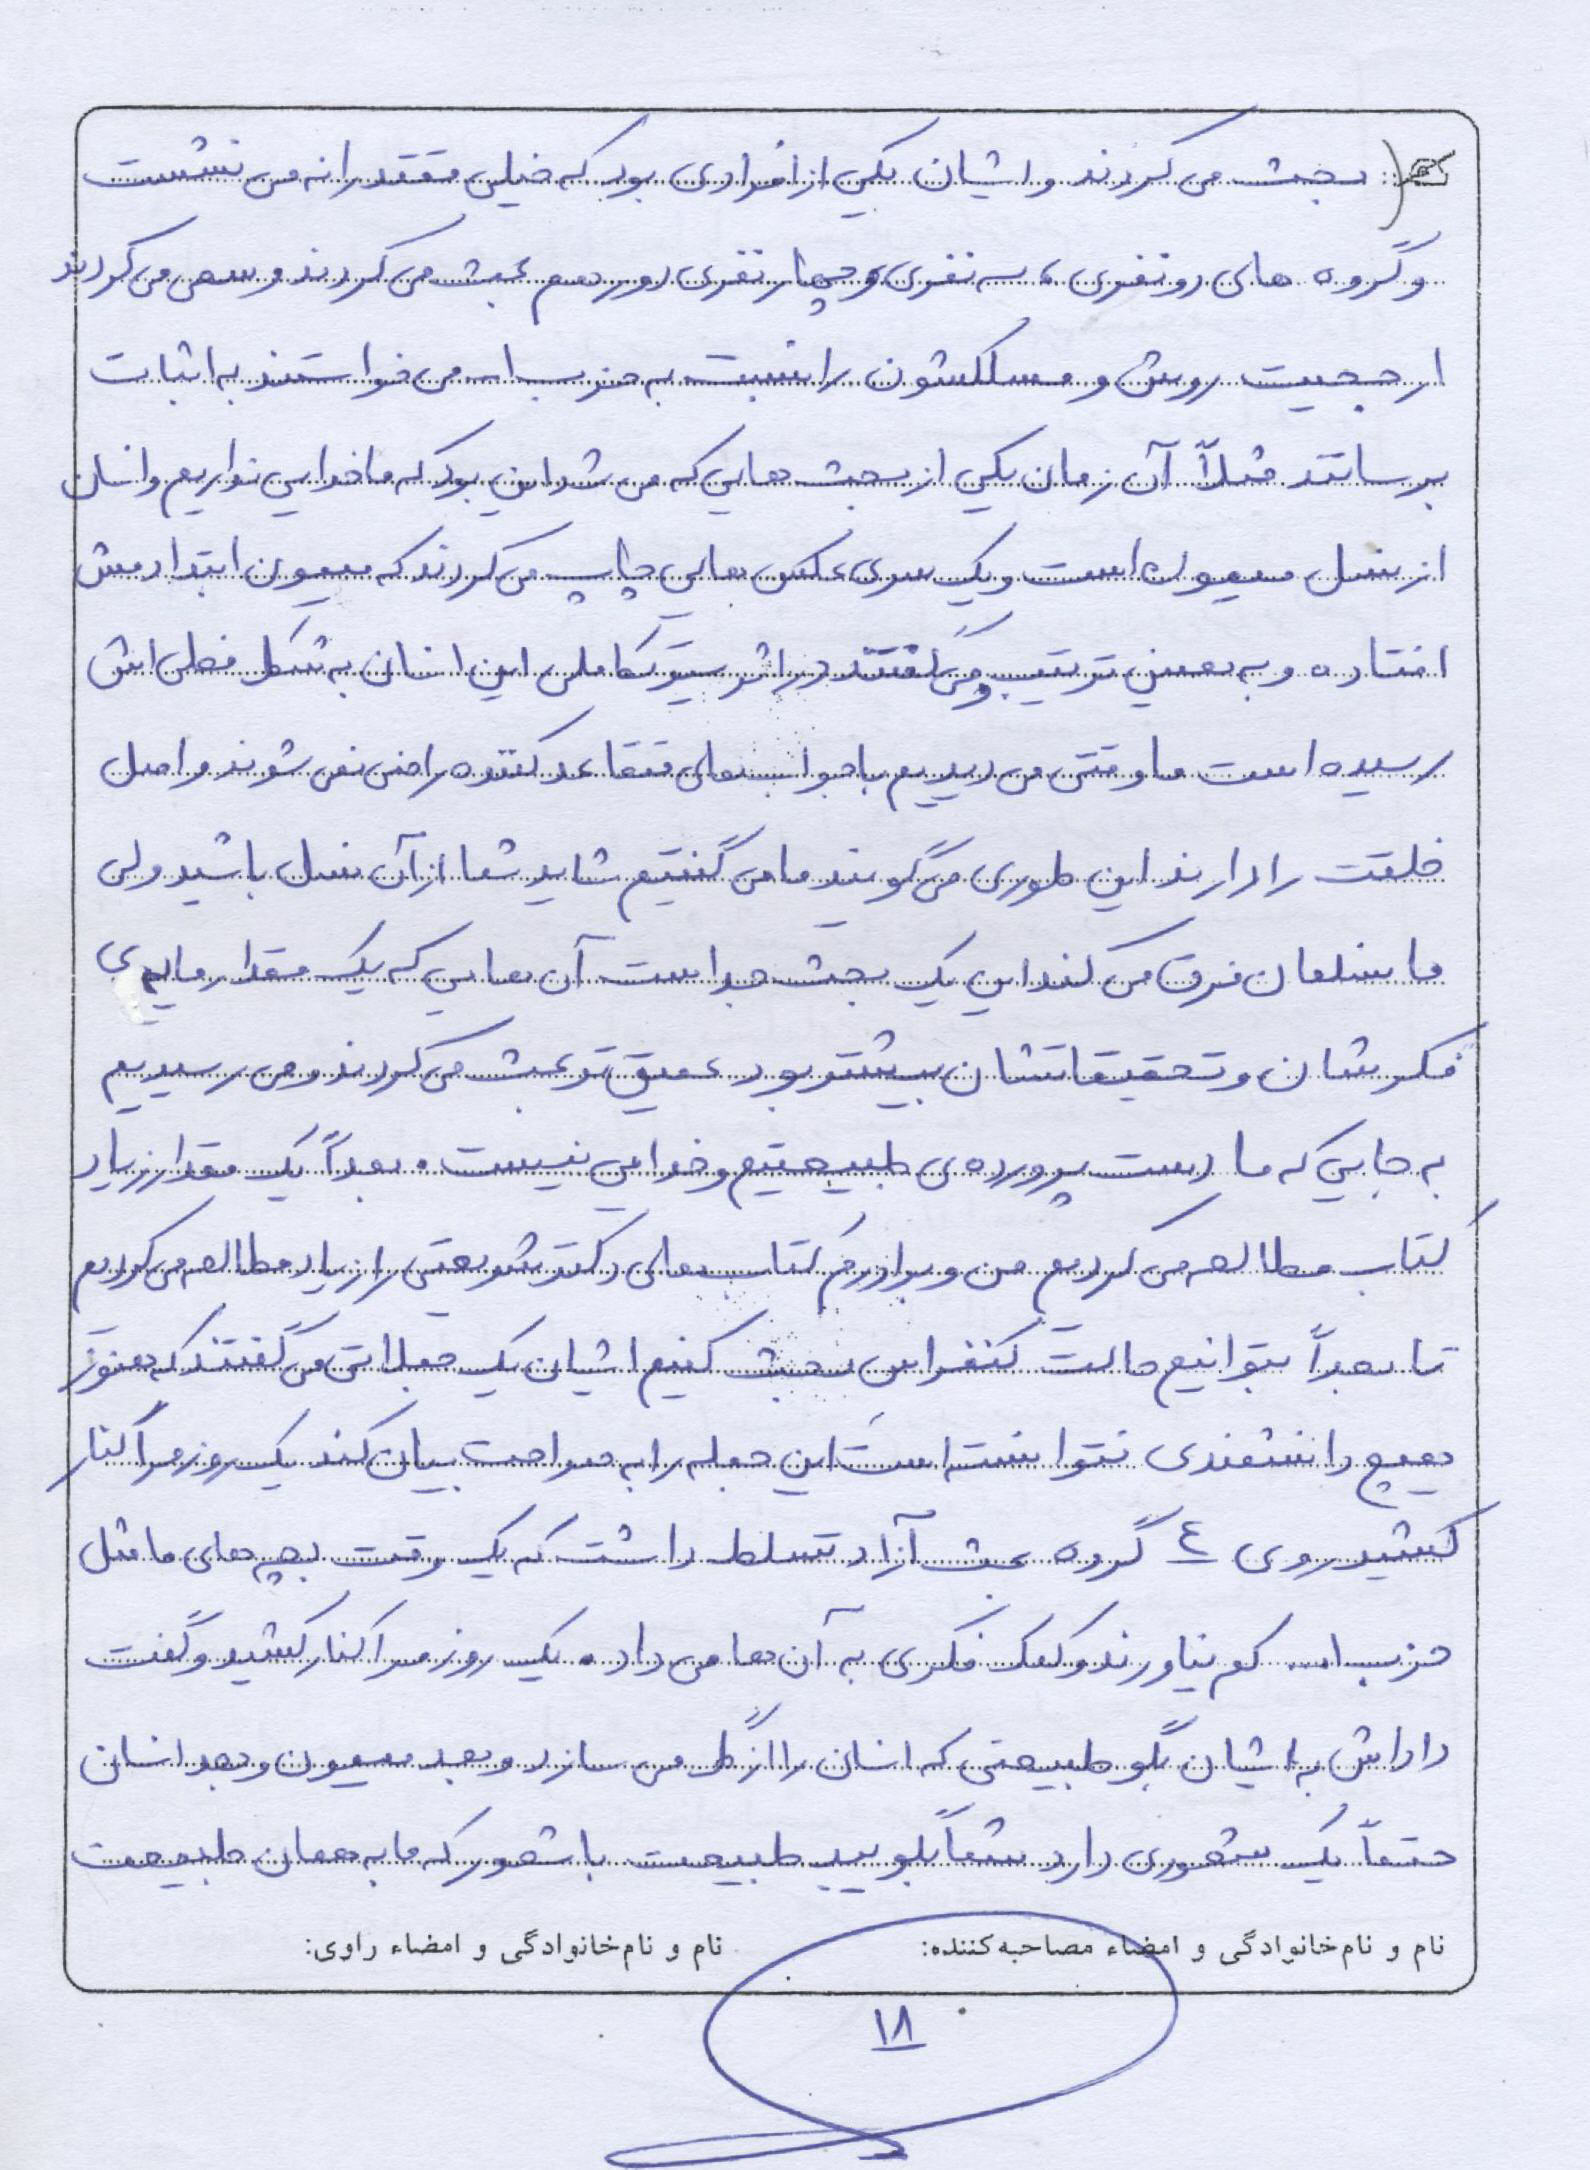 بحث می کردند و ایشان یکی از افرادی بود که خیلی مقتدرانه می نشست
و گروه های دو نفری ، سه نفری و چهار نفری دور هم بحث می کردند و سعی می کردند
ارجحیت روش و مسلکشون را نسبت به حزب ا... می خواستند به اثبات
برسانند مثلاً آن زمان یکی از بحث هایی که می شد این بود که ما خدایی نداریم و انسان
از نسل میمون است و یک سری عکس هایی چاپ می کردند که میمون ابتدا دمش
افتاده و به همین ترتیب و می گفتند در اثر سیر تکاملی این انسان به شکل فعلی اش
رسیده است ما وقتی می دیدیم با جواب های متقاعد کننده راضی نمی شوند و اصل
خلقت را دارند این طوری می گویند ما می گفتیم شاید شما از آن نسل باشید ولی
ما نسلمان فرق می کند این یک بحث جدا است آن هایی که یک مقدار مایه ی
فکرشان و تحقیقاتشان بیشتر بود عمیق تر بحث می کردند و می رسیدیم
به جایی که ما دست پرورده ی طبیعتیم و خدایی نیست . بعداً یک مقدار زیاد
کتاب مطالعه می کردیم من و برادرم کتاب های دکتر شریعتی را زیاد مطالعه می کردیم
تا بعداً بتوانیم حالت کنفرانس بحث کنیم ایشان یک جملاتی می گفتند که هنوز
هیچ دانشمندی نتوانسته است این جمله را به صراحت بیان کند یک روز مرا کنار
کشید روی ٤ گروه بحث آزاد تسلط داشت که یک وقت بچه های ما مثل
حزب ا... کم نیاورند و کمک فکری به آن ها می داد . یک روز مرا کنار کشید و گفت
داداش به ایشان بگو طبیعتی که انسان را از گل می سازد و بعد میمون و بعد انسان
حتماً یک شعوری دارد شما بگویید طبیعت با شعور که ما به همان طبیعت
نام و نام خانوادگی و امضاء مصاحبه کننده:
نام و نام خانوادگی و امضاء راوی:
١٨